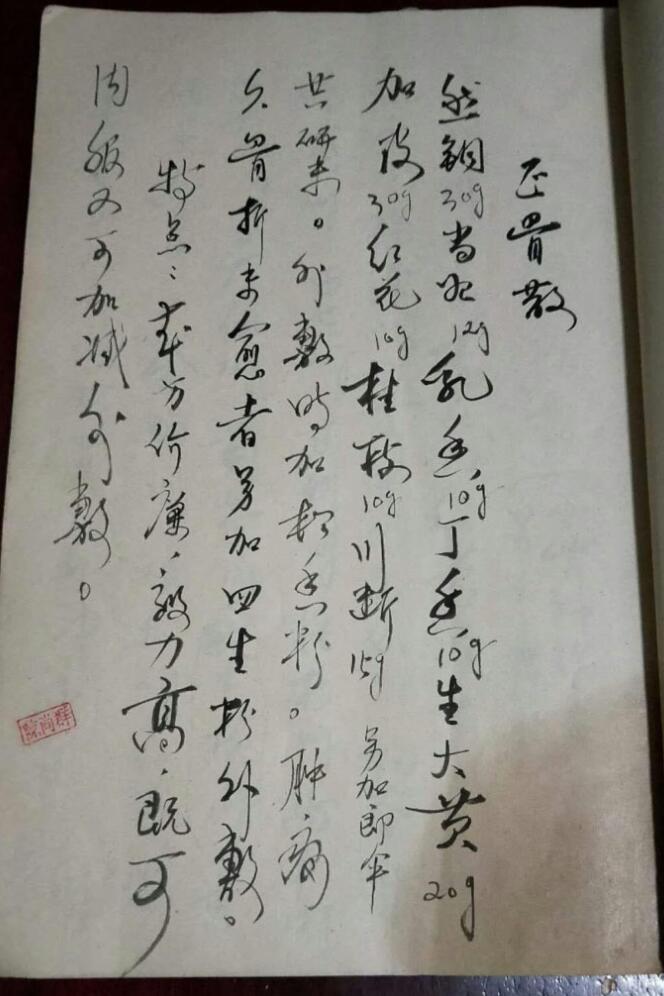 正骨散
然铜30g当归12g乳香10g丁香10g生大黄20g
加皮30g红花10g桂枝10g川断15g 另加即
共研末。外敷时加松香粉。肿痛
久骨折未愈者另加四生粉外敷。
特点：本方价廉，效力高，既可
内服又可加减外敷。